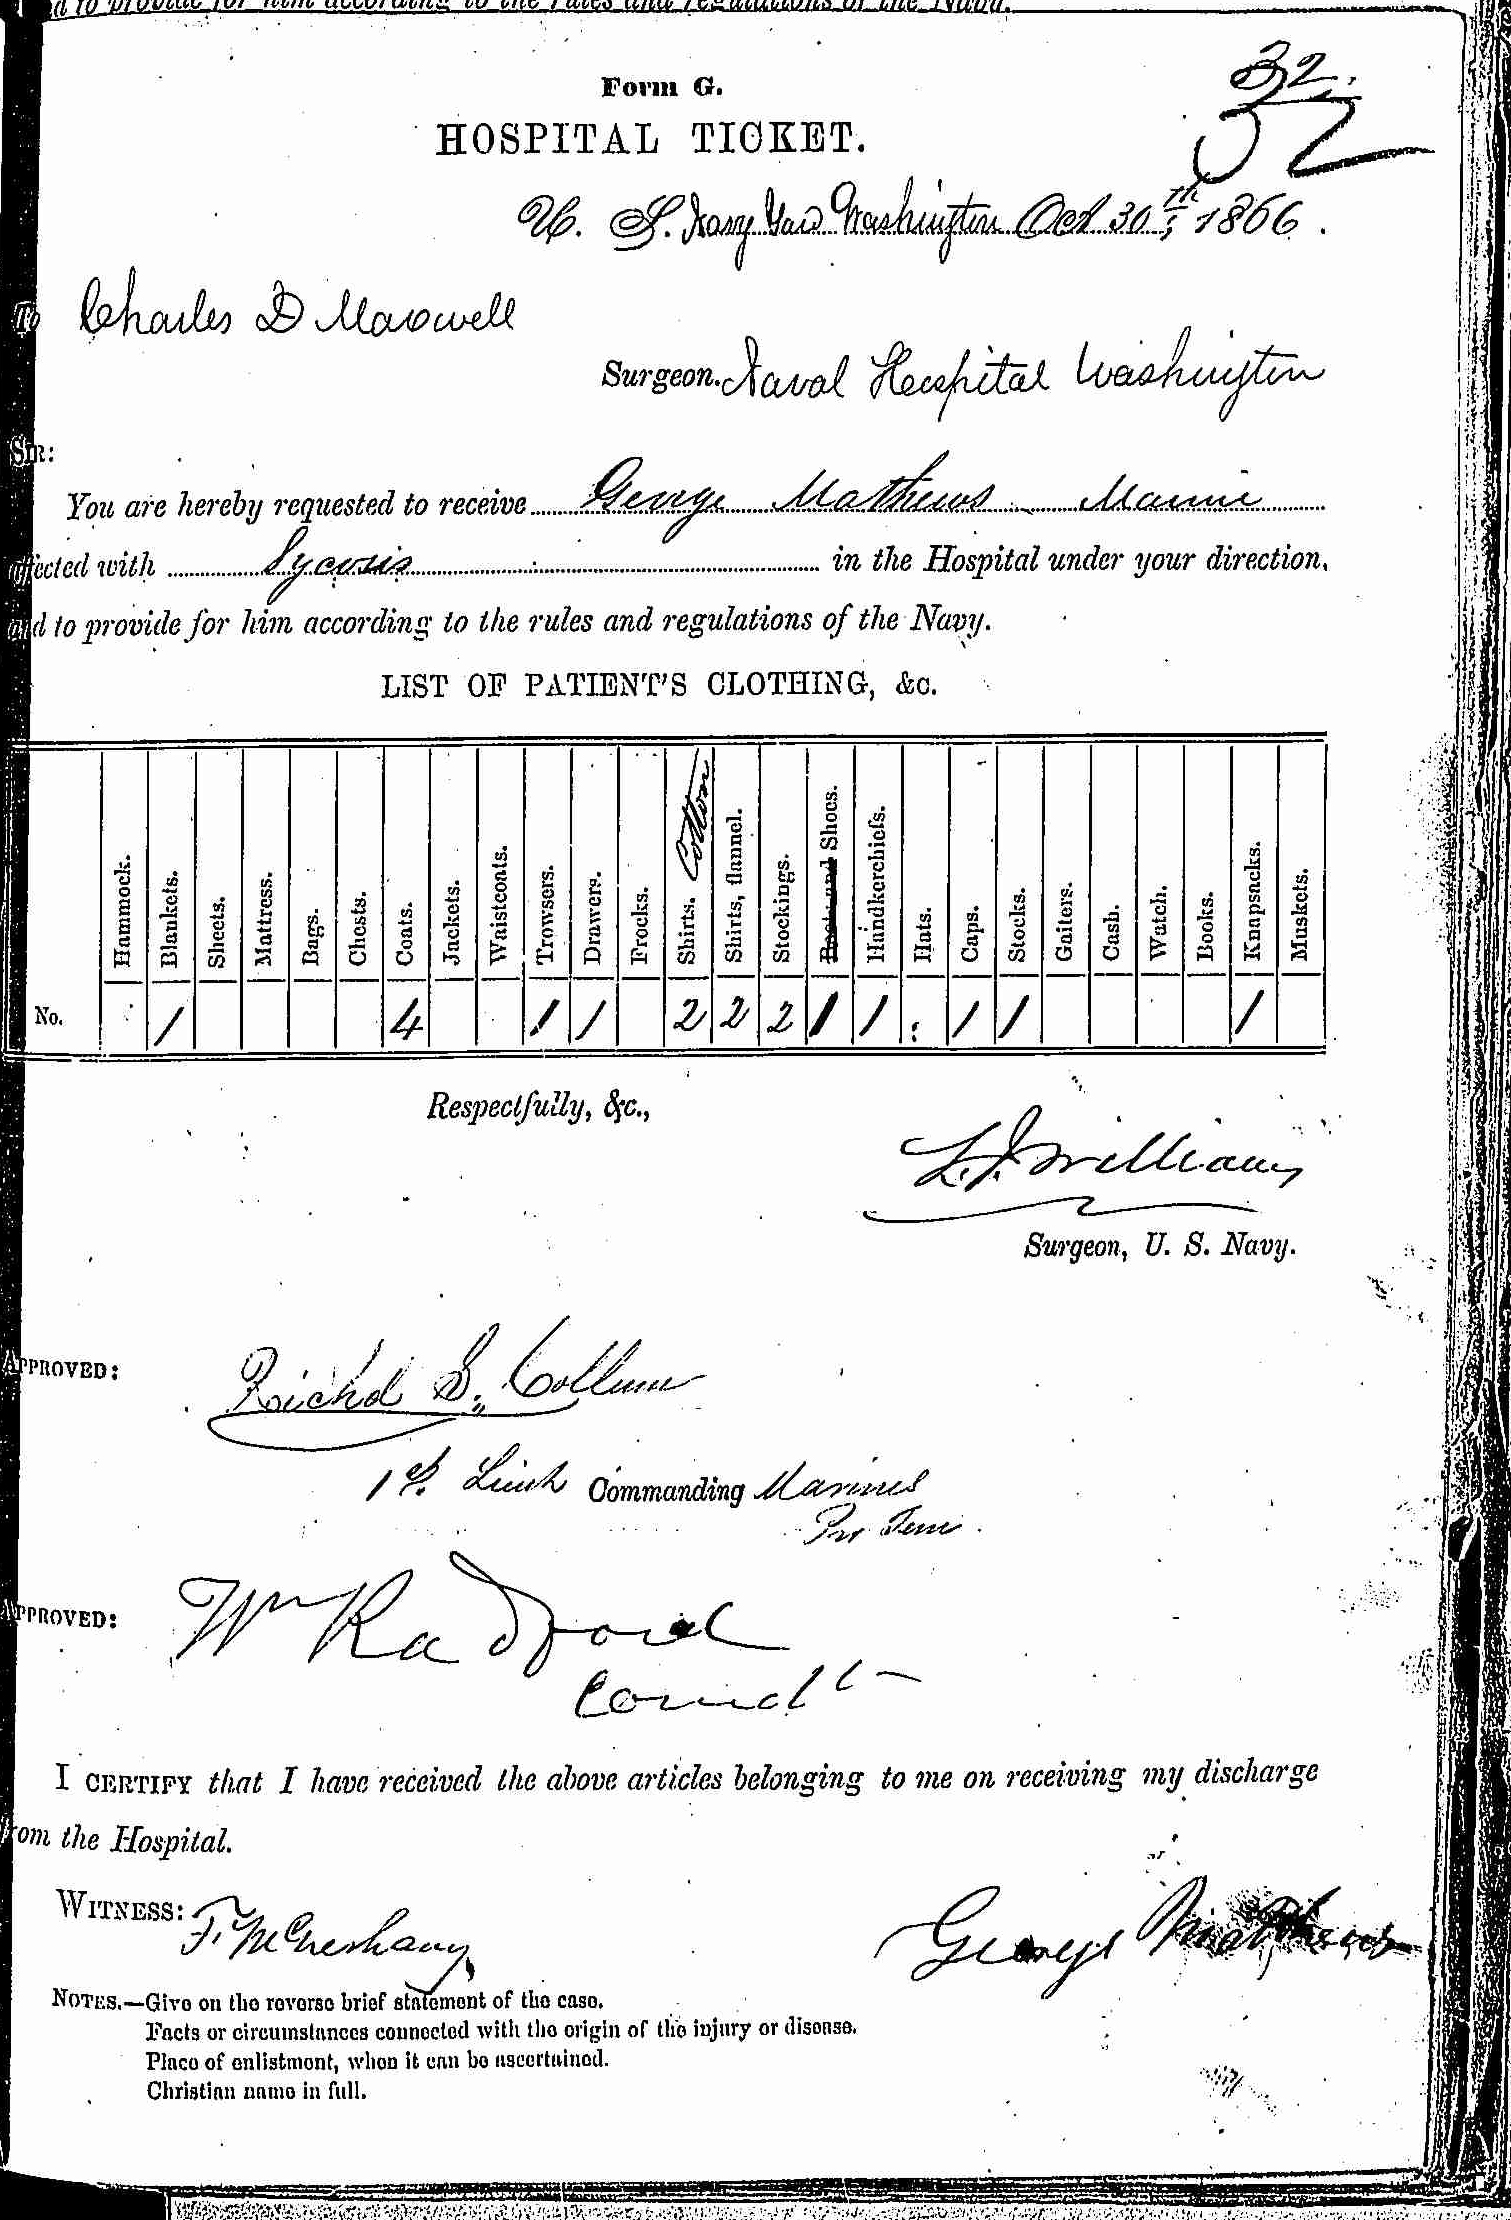 d to provide for him according to the rules and regulations of the Navy.
32.
32
Form G.
HOSPITAL TICKET.
U. S. Navy Yard Washington Oct 30th, 1866.
To Charles D Maxwell
Surgeon. Naval Hospital Washington
SIR:
You are hereby requested to receive George Mathews Marine
affected with Sycosis in the Hospital under your direction,
and to provide for him according to the rules and regulations of the Navy.
LIST OF PATIENT'S CLOTHING, &c.
Hammock. Blankets. Sheets. Mattress. Bags. Chests. Coats. Jackets. Waistcoats. Trowsers. Drawers. Frocks. Shirts. Cotton Shirts, flannel. Stockings. Boots and Shoes. Handkerchiefs. Hats. Caps. Stocks. Gaiters. Cash. Watch. Books. Knapsacks. Muskets.
No. 1 4 1 1 2 2 2 1 1 1 1 1
Respectfully, &c.,
L. J. Williams
Surgeon, U. S. Navy.
APPROVED: Richd S. Collum
1st. Lieut Commanding Marines
Pro Tem.
APPROVED: Wm Radford
Comdt
I CERTIFY that I have received the above articles belonging to me on receiving my discharge
from the Hospital.
WITNESS: F.
George Matthews
NOTES.—Give on the reverse brief statement of the case.
Facts or circumstances connected with the origin of the injury or disease.
Place of enlistment, when it can be ascertained.
Christian name in full.